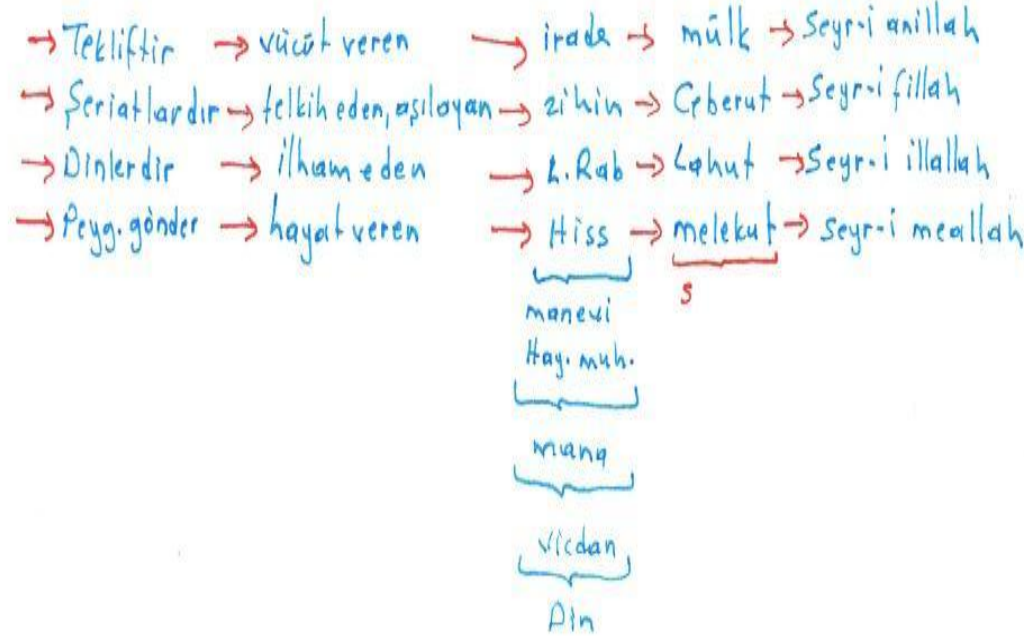 → Tekliftir → vücüt veren → irade → mülk → Seyr-i anillah
→ Şeriatlardır → telkih eden, aşılayan → zihin → Ceberut → Seyr-i fillah
→ Dinlerdir → ilham eden → L.Rab → Lahut → Seyr-i illallah
→ Peyg. gönder → hayat veren → Hiss → melekut → seyr-i meallah
s
manevi
Hay. muh.
mana
vicdan
Din